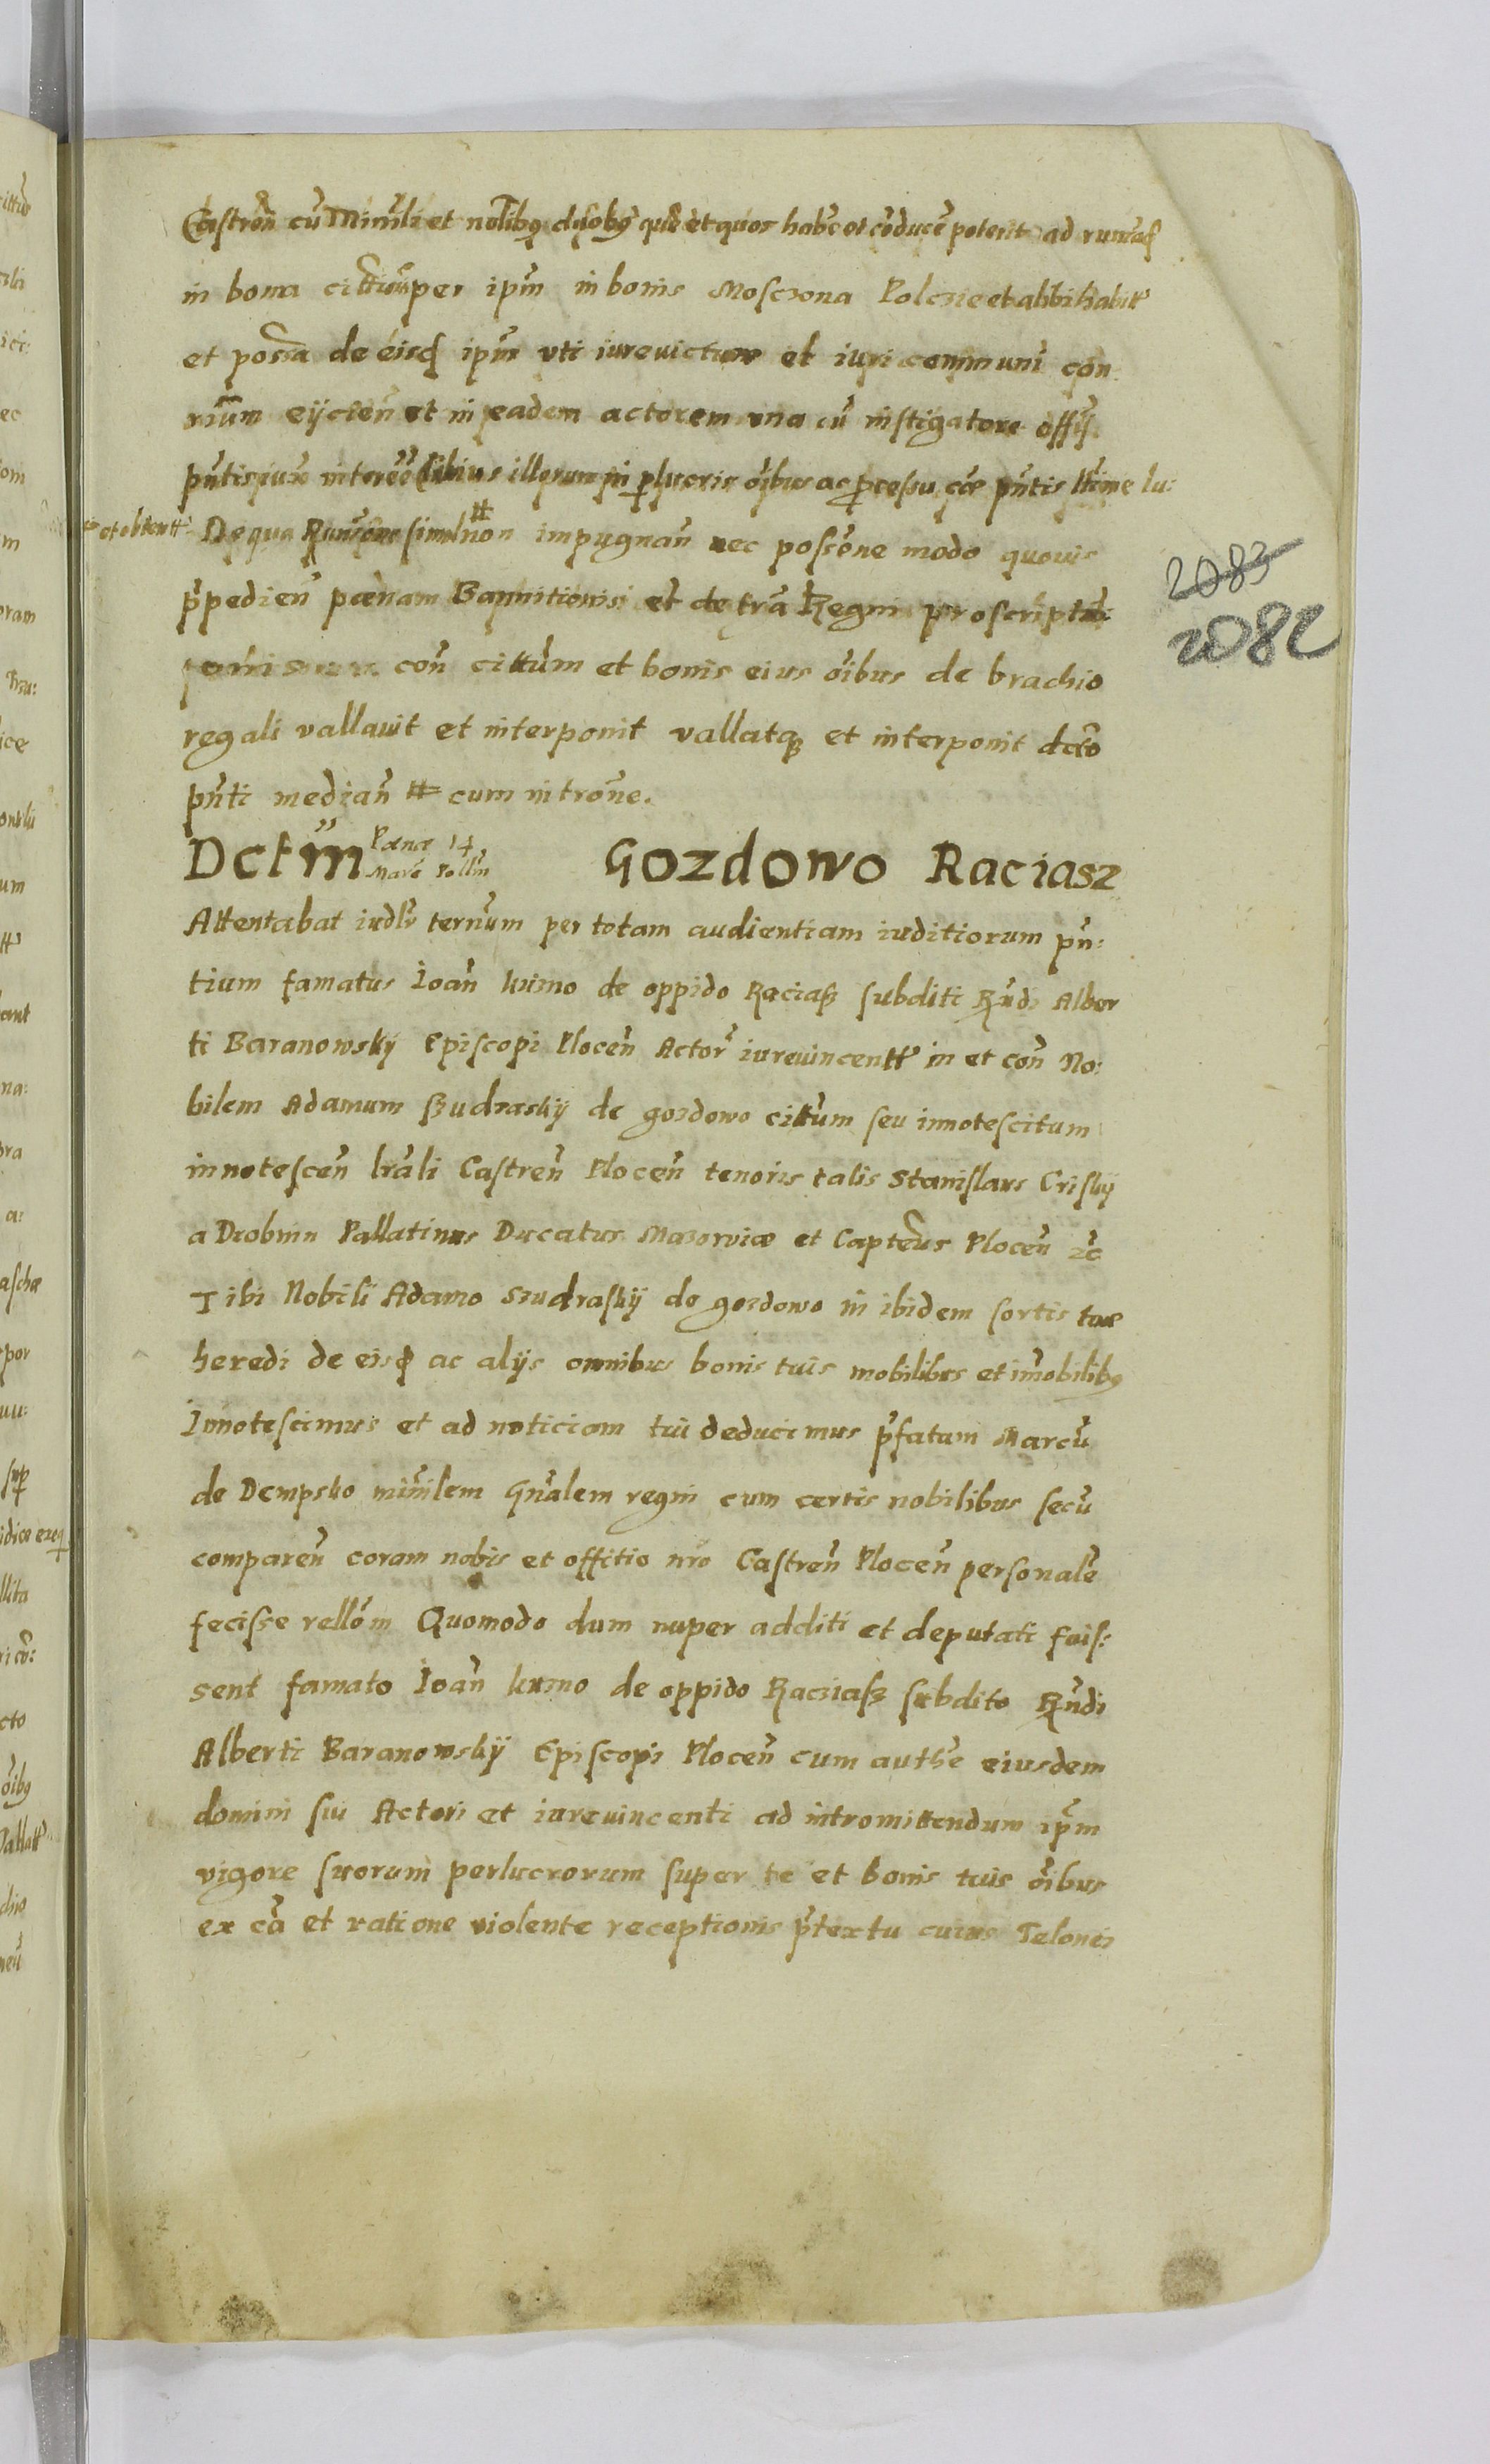 Castren̄ cū Minrłi et nołibꝫ duobꝫ quē et quos habē et cōducē poterit ad
in bona cittum per ipm̄ in bonis Mosczona Polczie et alibi habitt
et possa de eisdē ipm̄ uti iurevictum et iuri communi con
rium eijcien̄ et in eadem actorem una cū instigatore offij
pn̄tis iure illorum in perlucris oībus ac pcessu cāe pn̄tis lttime lu:
et obtentt De qua non impugnan̄ nec possōne modo quovis
p̄pedien̄ pœnam Bannitionis et de tra Regni proscripti
onis con̄ cittum et bonis eius oībus de brachio
regali vallavit et interponit vallatqꝫ et interponit dcto
pn̄ti median̄ # cum introne.
Dctm Pœnæ 14 Marc Poll̄m Gozdowo Raciasz
Attentabat iudłr ternum per totam audientiam iuditiorum pn̄:
tium famatus Ioan̄ kumo de oppido Raciasz subditi Rn̄di Alber
ti Baranowskÿ Episcopi Plocen̄ Actor iurevincentt in et con̄ No:
bilem Adamum Szudraskÿ de gozdowo cittum seu innotescitum
innotescen̄ lrāli Castren̄ Plocen̄ tenoris talis Stanislaus Criskÿ
a Drobnin Pallatinus Ducatus Mazowiæ et Capteus Plocen̄ ꝛc
Tibi Nobili Adamo Szudraskÿ de gozdowo in ibidem sortis tuæ
heredi de eisdē ac alijs omnibus bonis tuis mobilibus et im̄obilibꝫ
Innotescimus et ad noticiam tui deducimus p̄fatum Marcū
de Dempsko minr̄lem Gnālem regni cum certis nobilibus secū
comparen̄ coram nobis et offitio nr̄o Castren̄ Plocen̄ personałr
fecisse rellōm Quomodo dum nuper additi et deputati fuis:
sent famato Ioan̄ kumo de oppido Racziasz subdito Rn̄di
Alberti Baranowskÿ Episcopi Plocen̄ cum authe eiusdem
domini sui Actori et iurevincenti ad intromittendum ipm̄
vigore suorum perlucrorum super te et bonis tuis oībus
ex cā et ratione violente receptionis p̄textu cuius Telonei
2083
2082